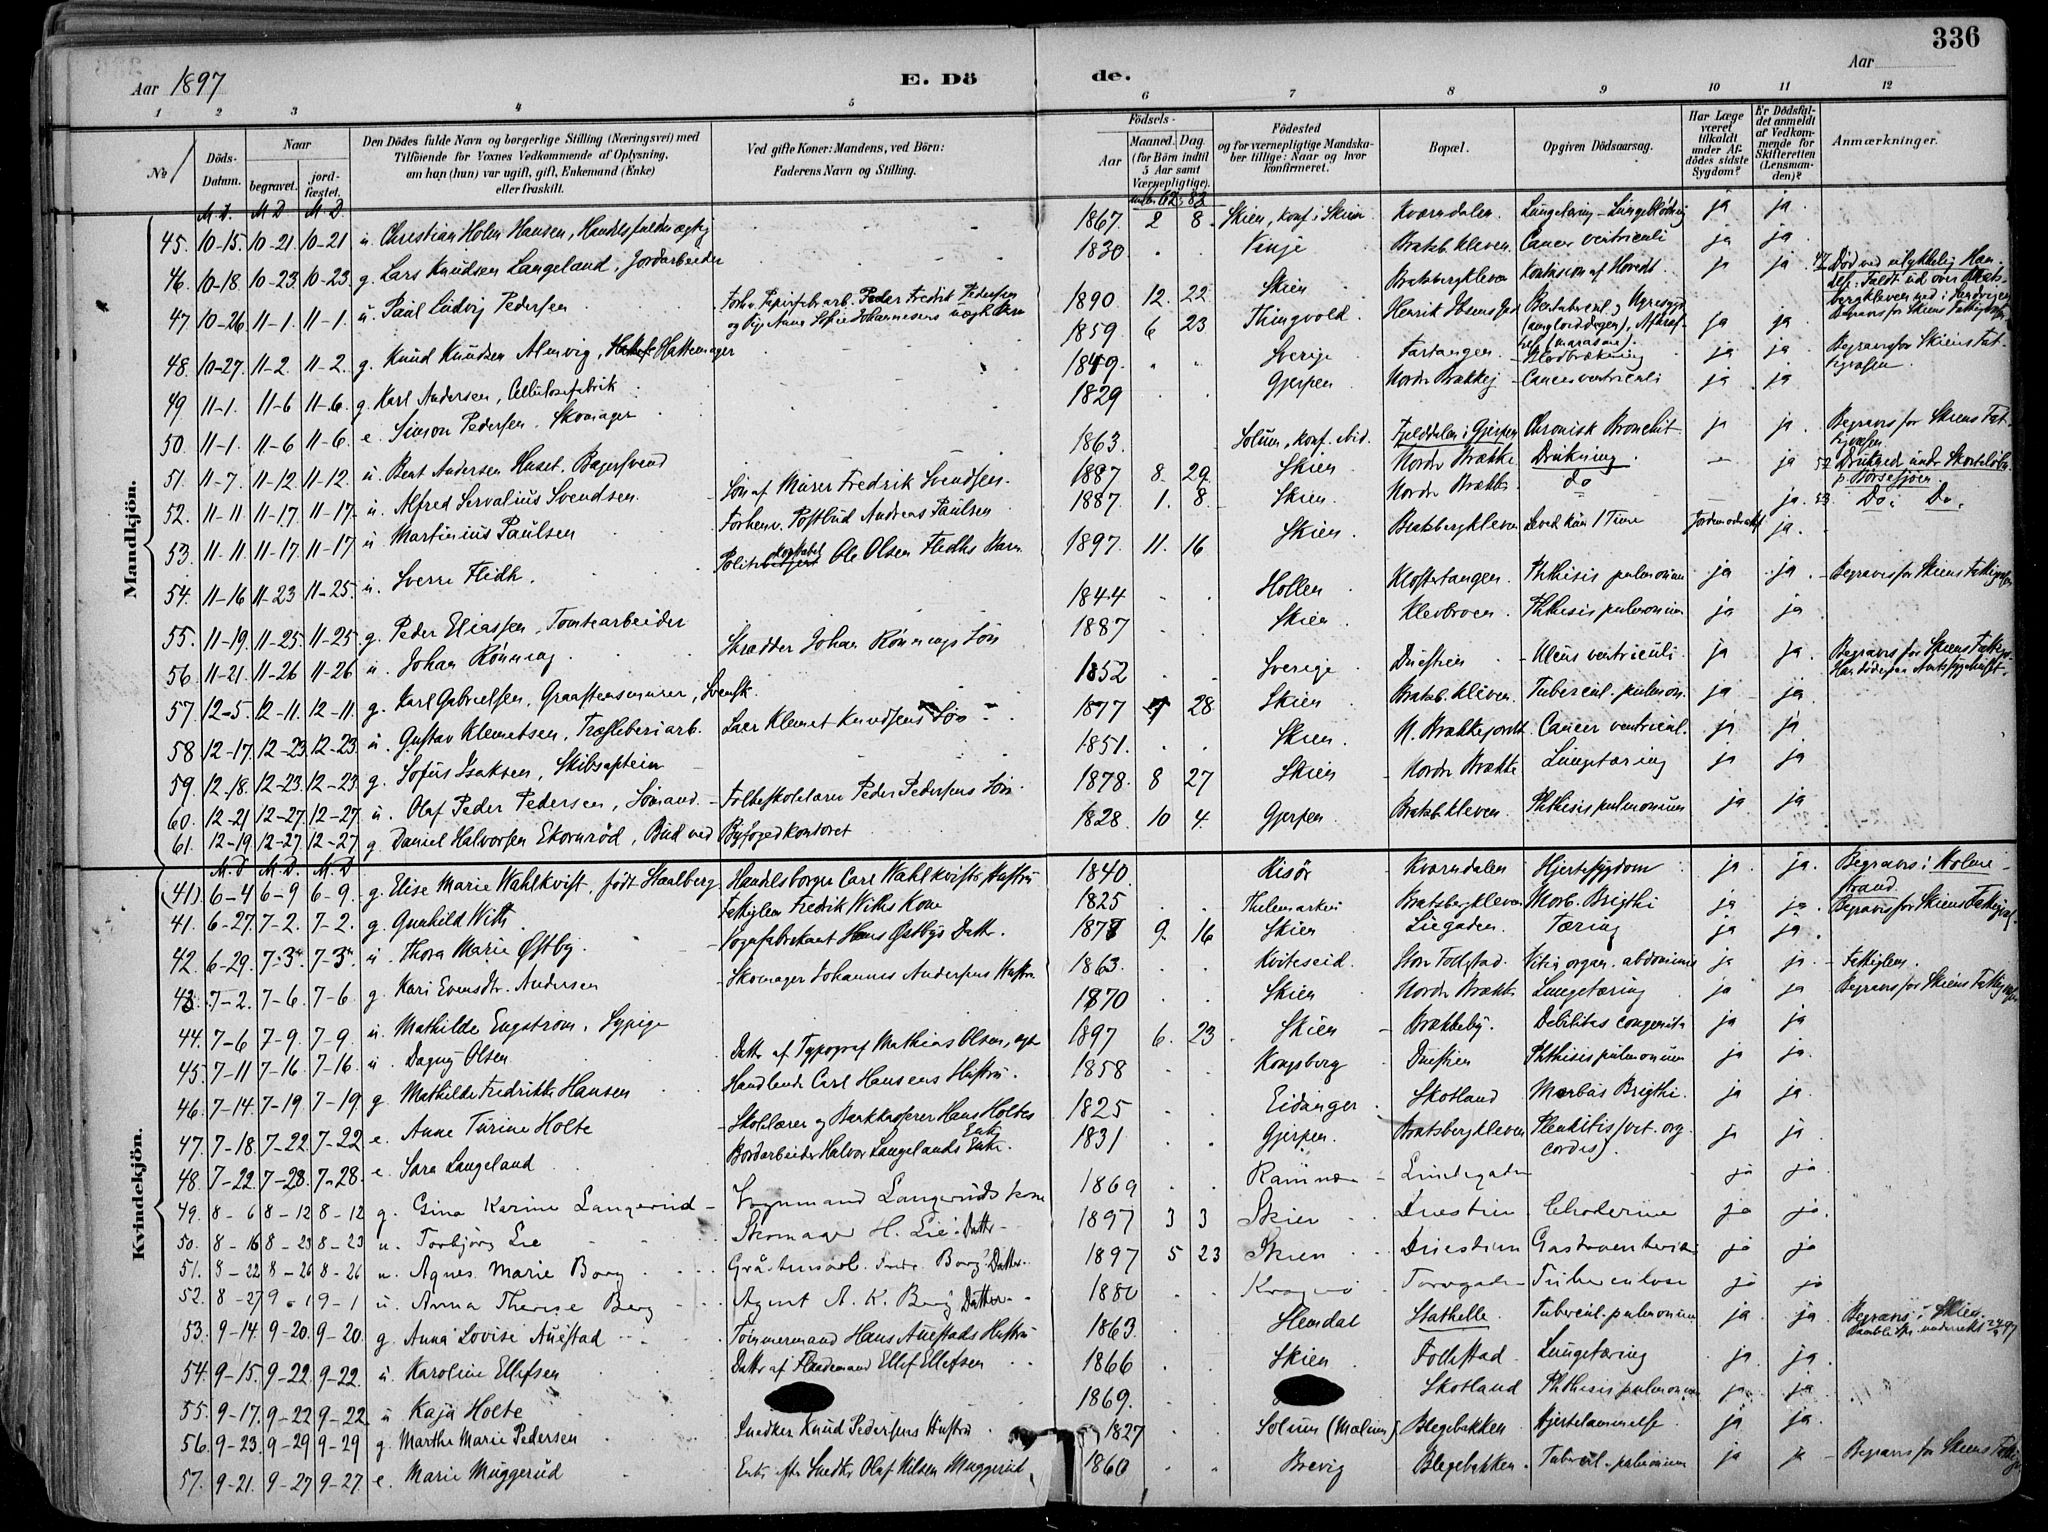 336
Aar 1897
E. Dö
de.
Aar
1 2 3 4 5 6 7 8 9 10 11 12
No
Döds-Datum.
Naar
begravet.
jord-fæstet.
Den Dödes fulde Navn og borgerlige Stilling (Næringsvei) med Tilföiende for Voxnes Vedkommende af Oplysning, om han (hun) var ugift, gift, Enkemand (Enke) eller fraskilt.
Ved gifte Koner: Mandens, ved Börn: Faderens Navn og Stilling.
Födsels-
Aar
Maaned. Dag.
(for Börn indtil 5 Aar samt Værnepligtige).
Födested og for værnepligtige Mandskaber tillige: Naar og hvor konfirmeret.
Bopæl.
Opgiven Dödsaarsag.
Har Læge været tilkaldt under Afdödes sidste Sygdom?
Er Dödsfaldet anmeldt af Vedkommende for Skifteretten (Lensmanden)?
Anmærkninger.
Mandkjön.
M. D. M. D. M. D.
45. 10-15. 10-21 10-21 u. Christian Holm Hansen, Handelsfuldmægtig 1867. 2 8. Skien, konf. i Skien. Kværndalen. Lungetæring - Lungeblødning ja ja.
46. 10-18 10-23. 10-23. g. Lars Knudsen Langeland, Jordarbeider 1830. Vinje Bratsb.kleven. Cancer ventriculi ja ja.
47 10-26. 11-1. 11-1. u. Paul Ludvig Pedersen Forhv. Papirfabr.arb. Peder Fredrik Pedersen og Pige Anna Sofie Johannesens uægte Barn 1890. 12. 22 Skien Bratsbergkleven Kontusion af Hovedet ja ja. 47 Død ved ulykkelig Hændelse. Faldt ud over Bratsbergkleven ned i Begravs for Skiens Fattig
48. 10-27. 11-2 11-2. g. Knud Knudsen Almvig, Hattemager 1859 6 23 Thingvold. ja ja. Begravs for Skiens Fat
49 11-1. 11-6 11-6. g. Karl Andersen, Cellulosefabrik 1849. Sverige Tartangen. Blodbrækning ja ja.
50. 11-1. 11-6 11-6. e. Simon Pedersen. Skomager 1829 Gjerpen. Nordre Brække Cancer ventriculi ja ja
51. 11-7. 11-12 11-12. u. Bent Andersen Huset. Bagersvend 1863. Solum, konf. ibid. Fjelddalen i Gjerpen Chronisk Bronchit. ja ja. Begravs for Skiens Fat
52. 11-11 11-17 11-17. u. Alfred Servalius Svendsen. Søn af Murer Fredrik Svendsen. 1887 8. 29 Skien Nordre Brække Drukning. - ja 52 Druknede under Skøiteløbn. p. Børsesjøen
53. 11-11. 11-17 11-17 u Martinius Paulsen Forhenv. Postbud Andreas Paulsen 1887. 1. 8. Skien. Nordre Brække do - ja. 53. Do. Do.
54. 11-16 11-23 11-25. u. Sverre Flidh. Politikonstabel Ole Olsen Flidhs Barn 1897. 11. 16 Skien. Bratsbergkleven Leved kun 1 Time ja.
55. 11-19. 11-25. 11-25 g. Peder Eliassen, Tomtearbeider 1844 Hollen Klostertangen. Phthisis pulmonum ja ja. - Begravs for Skiens Fattig
56. 11-21 11-26 11-26 u. Johan Rønning Skrædder Johan Rønnings Søn 1887 Skien. Klevbroen. Phthisis pulmonum ja ja
57. 12-5. 12-11. 12-11. g. Karl Gabrielsen, Graastensmurer, Svensk. 1852 Sverige Duestien - Ulcus ventriculi. ja ja. Begravs for Skiens Fattigv. Han døde paa Amtssygehuset.
58 12-17. 12-23 12-23. u. Gustav Klemetsen, Træsliberiarb. Laer Klemet Knudsens Søn 1877 28 Skien Bratsb.kleven. Tubercul. pulmon. ja ja.
59. 12-18. 12-23. 12-23. g. Sofus Isaksen, Skibscaptein 1851. Skien. N. Brækkejordet Cancer ventricul. ja ja
60. 12-21 12-27 12-27 u. Olaf Peder Pedersen, Sømand. Folkeskolelærer Peder Pedersens Søn 1878. 8 27 Skien Nordre Brække Lungetæring ja ja
61. 12-19 12-27 12-27 g. Daniel Halvorsen Ekornrød, Bud ved Byfogedkontoret 1828. 10 4. Gjerpen Bratsb.kleven. Phthisis pulmonum ja ja
Kvindekjön.
M. D M. D. M. D
(41) 6-4 6-9 6-9. g. Elise Marie Wahlkvist, født Staalberg Handelsborger Carl Wahlkvists Hustru 1840. Risør Kværndalen Hjertesygdom ja ja. Begravs i Holmestrand.
41. 6-27. 7-2. 7-2. g. Gunhild With Fattiglem Fredrik Withs Kone 1825 Thelemarken Bratsbergkleven Morb. Brigthi ja ja. Begravs for Skiens Fattigvæs.
42. 6-29. 7-3 7-3 u. Thora Marie Østby. Vognfabrikant Hans Østbys Datter. 1878 9. 16 Skien Liegaden. Tæring ja ja.
43. 7-2. 7-6. 7-6 g. Kari Evensdtr. Andersen Skomager Johannes Andersens Hustru 1863. Kviteseid. Store Follestad. Vitia organ. abdominis ja ja. - Fattiglem.
44. 7-6 7-9. 7-9. u. Mathilde Engstrøm, Sypige 1870 Skien Nordre Brække Lungetæring ja ja Begravs for Skiens Fattig
45. 7-11 7-16 7-16 u. Dagny Olsen Datter af Typograf Mathias Olsen, 1897 6. 23 Skien Brækkeby. Debilitas congenita ja ja
46. 7-14. 7-19 7-19 g. Mathilde Fredrikke Hansen Handlende Carl Hansens Hustru. 1858 Kongsberg Duestien Phthisis pulmonum ja ja.
47. 7-18. 7-22 7-22 e. Anne Turine Holte Skolelærer og Bankkasserer Hans Holtes Enke 1825 Eidanger Skotland Morbus Brigthi. ja ja
48. 7-22. 7-28. 7-28 e. Sara Langeland Bordarbeider Halvor Langelands Enke. 1831 Gjerpen. Bratsbergkleven (vit. org. cordis). ja ja.
49. 8-6 8-12 8-12 g. Gina Karine Langerud Langeruds kone 1869 Ramnæs Lundegaten ja ja.
50. 8-16 8-23 8-23 u. Torbjørg Lie Skomager H. Lie's Datter 1897 3 3 Skien Duestien Cholerine ja ja.
51. 8-22 8-26 8-26 u. Agnes Marie Borg Borg's Datter. 1897 5 23 Skien Duestien ja ja
52. 8-27 9-1 9-1 u. Anna Therese Berg Agent A. K. Berg' Datter 1880 Kragerø Torvgaten Tuberculose ja ja
53. 9-14 9-20. 9-20. g. Anna Lovise Auestad Tømmermand Hans Auestads Hustru 1863. Slemdal Stathelle Tubercul. pulmonum ja ja. Begravs i Skien
54. 9-15. 9-22 9-22. u. Karoline Ellefsen Datter af Ellef Ellefsen 1866 Skien Follestad. Lungetæring ja ja.
55. 9-17. 9-22 9-22 u Kaja Holte 1869. Skotland Phthisis pulmonum ja ja
56. 9-23. 9-29 9-29 g. Marthe Marie Pedersen Snedker Knud Pedersens Hustru. 1827 Solum (Mælum). Blegebakken Hjertelammelse ja ja.
57. 9-21. 9-27 9-27. e. Marie Muggerud Enke efter Snedker Olaf Nilsen Muggerud 1860 Brevig Blegebakken. Tubercul. pulmonum ja ja - Begravs for Skiens Fattig